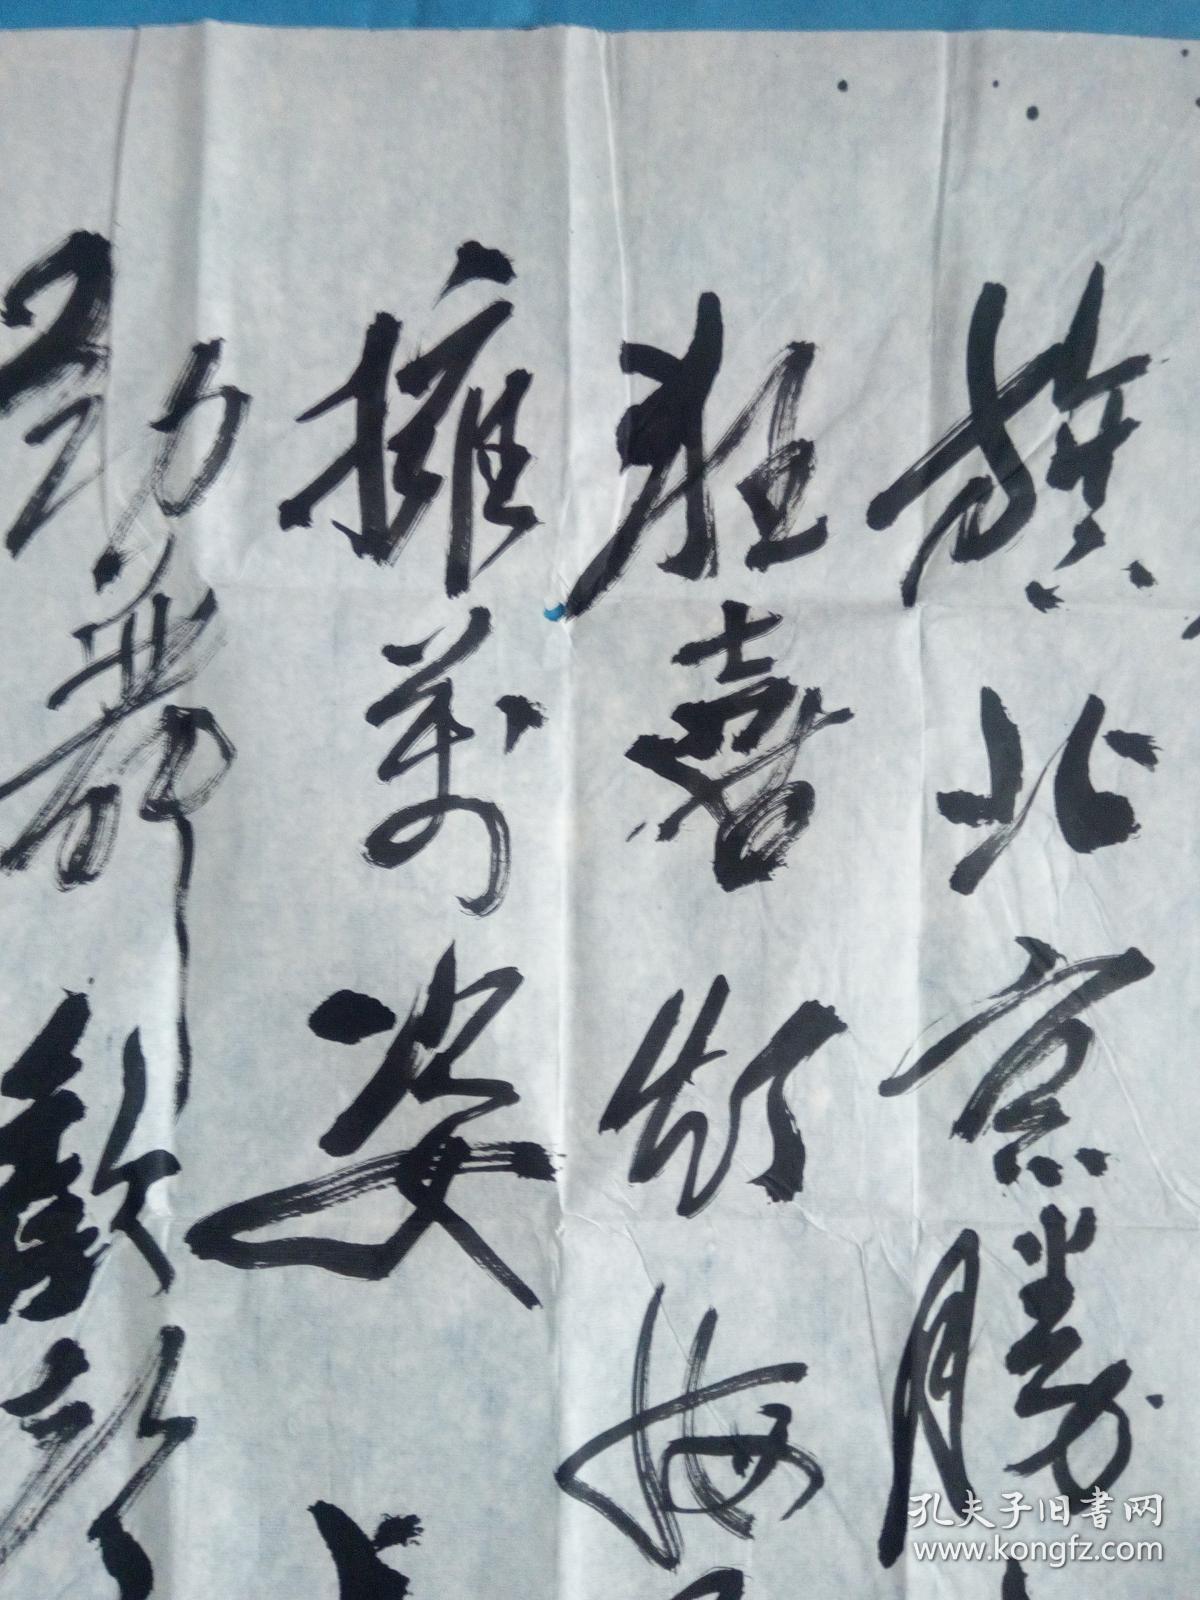 旗北京勝
狂喜
擁万姿
勁舞歡歌
孔夫子旧书网
www.kongfz.com